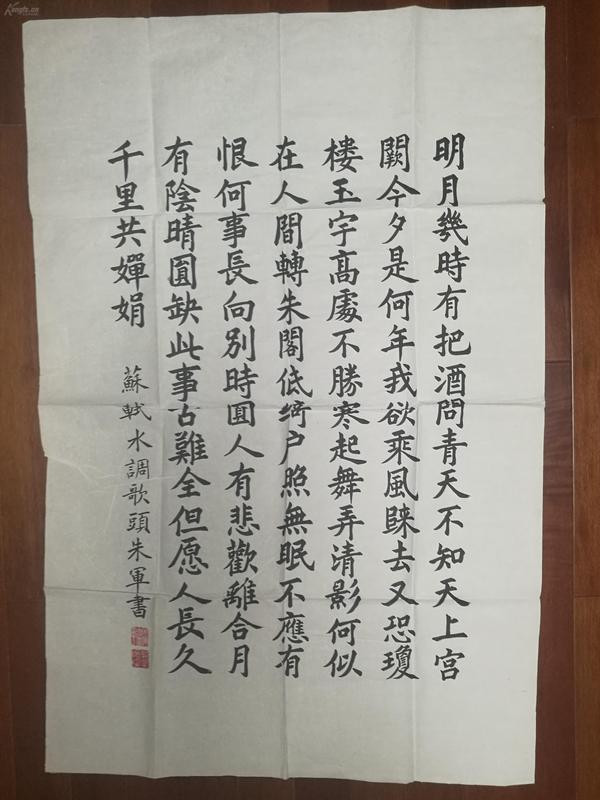 明月幾時有把酒問青天不知天上宫
闕今夕是何年我欲乘風歸去又恐瓊
樓玉宇高處不勝寒起舞弄清影何似
在人間轉朱閣低綺户照無眠不應有
恨何事長向别時圓人有悲歡離合月
有陰晴圓缺此事古難全但愿人長久
千里共嬋娟
蘇軾水調歌頭朱軍書